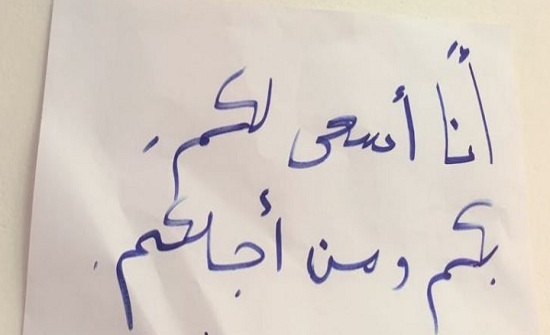 أنا أسعى لكم.
بكم ومن أجلكم.